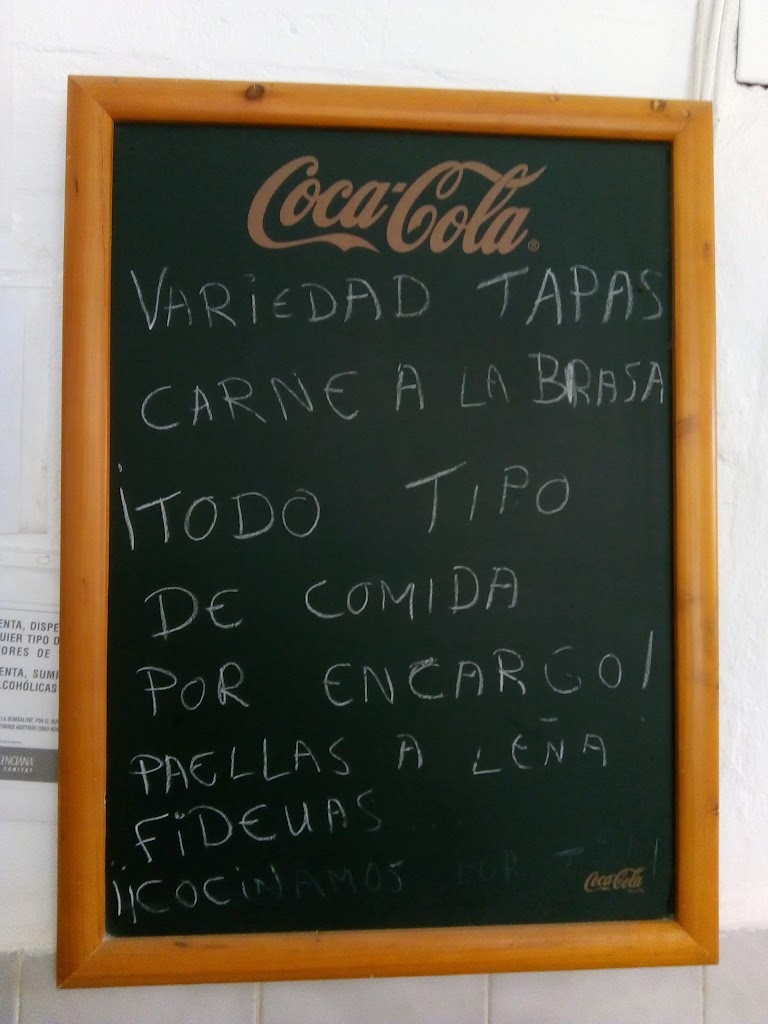 Coca-Cola®
VARIEDAD TAPAS
CARNE A LA BRASA
¡TODO TIPO
DE COMIDA
POR ENCARGO!
PAELLAS A LEÑA
FIDEUAS
¡¡COCINAMOS POR
Coca-Cola
ENTA, DISPE
UIER TIPO D
ORES DE
ENTA, SUMI
LCOHÓLICAS
ENCIANA